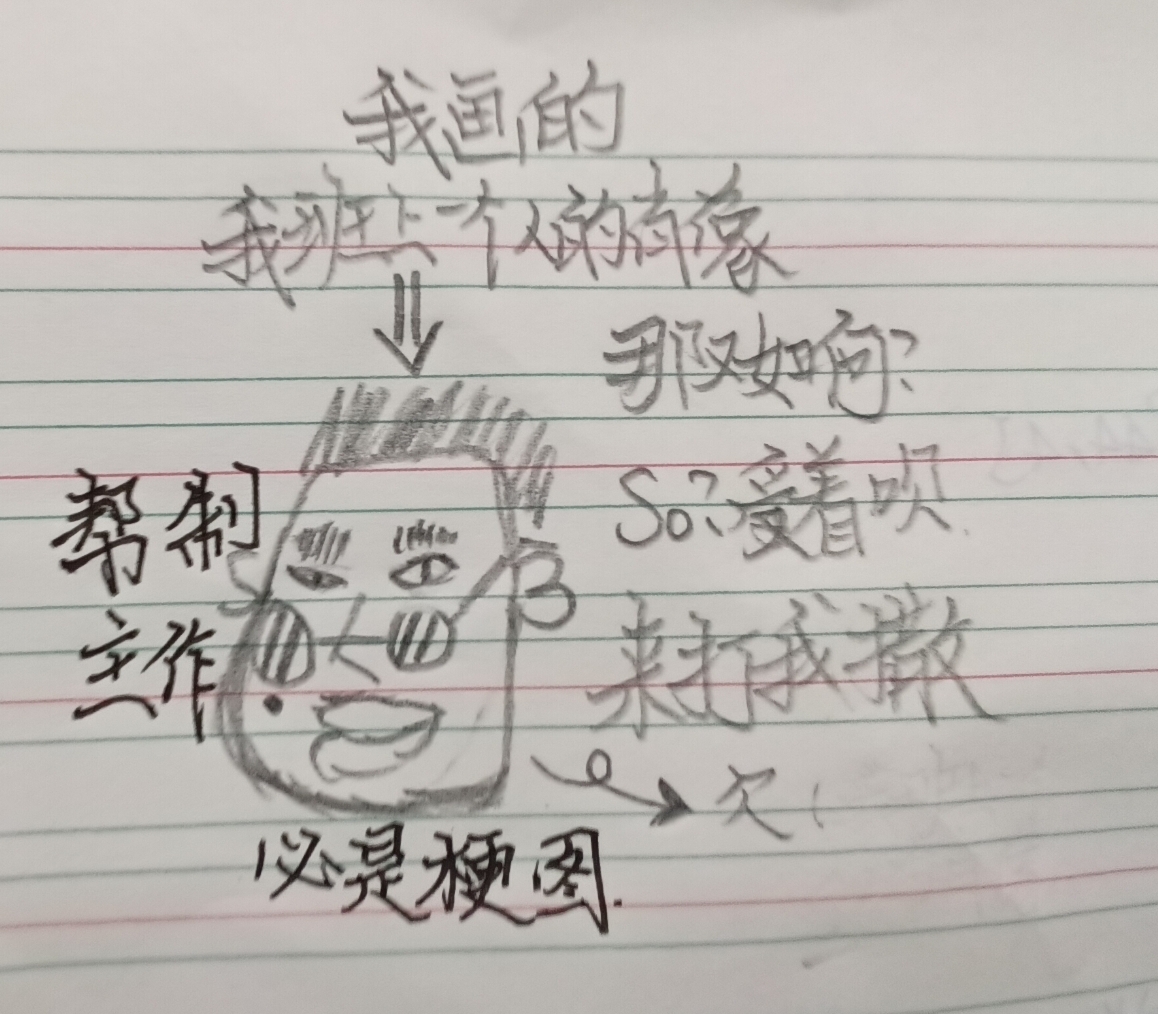 我画的
我班上一个人的肖像
那又如何?
So?受着呗.
来打我撒
欠(
帮制
主作
必是梗图.